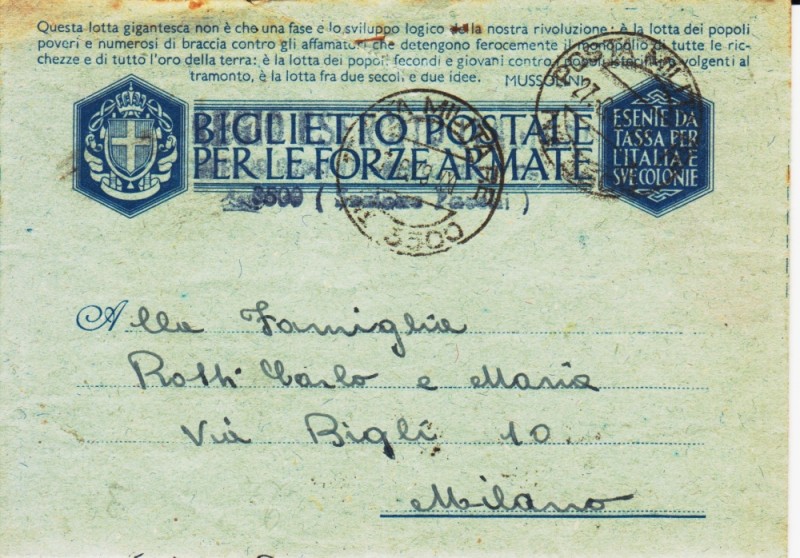 Questa lotta gigantesca non è che una fase e lo sviluppo logico della nostra rivoluzione: è la lotta dei popoli
poveri e numerosi di braccia contro gli affamatori che detengono ferocemente il monopolio di tutte le ric-
chezze e di tutto l'oro della terra: è la lotta dei popoli fecondi e giovani contro i popoli isteriliti e volgenti al
tramonto, è la lotta fra due secoli e due idee. MUSSOLINI
BIGLIETTO POSTALE
PER LE FORZE ARMATE
ESENTE DA
TASSA PER
L'ITALIA E
SVE COLONIE
3500 (
POSTA MILITARE
3500
Alla Famiglia
Rotti Carlo e Maria
Via Bigli 10.
Milano